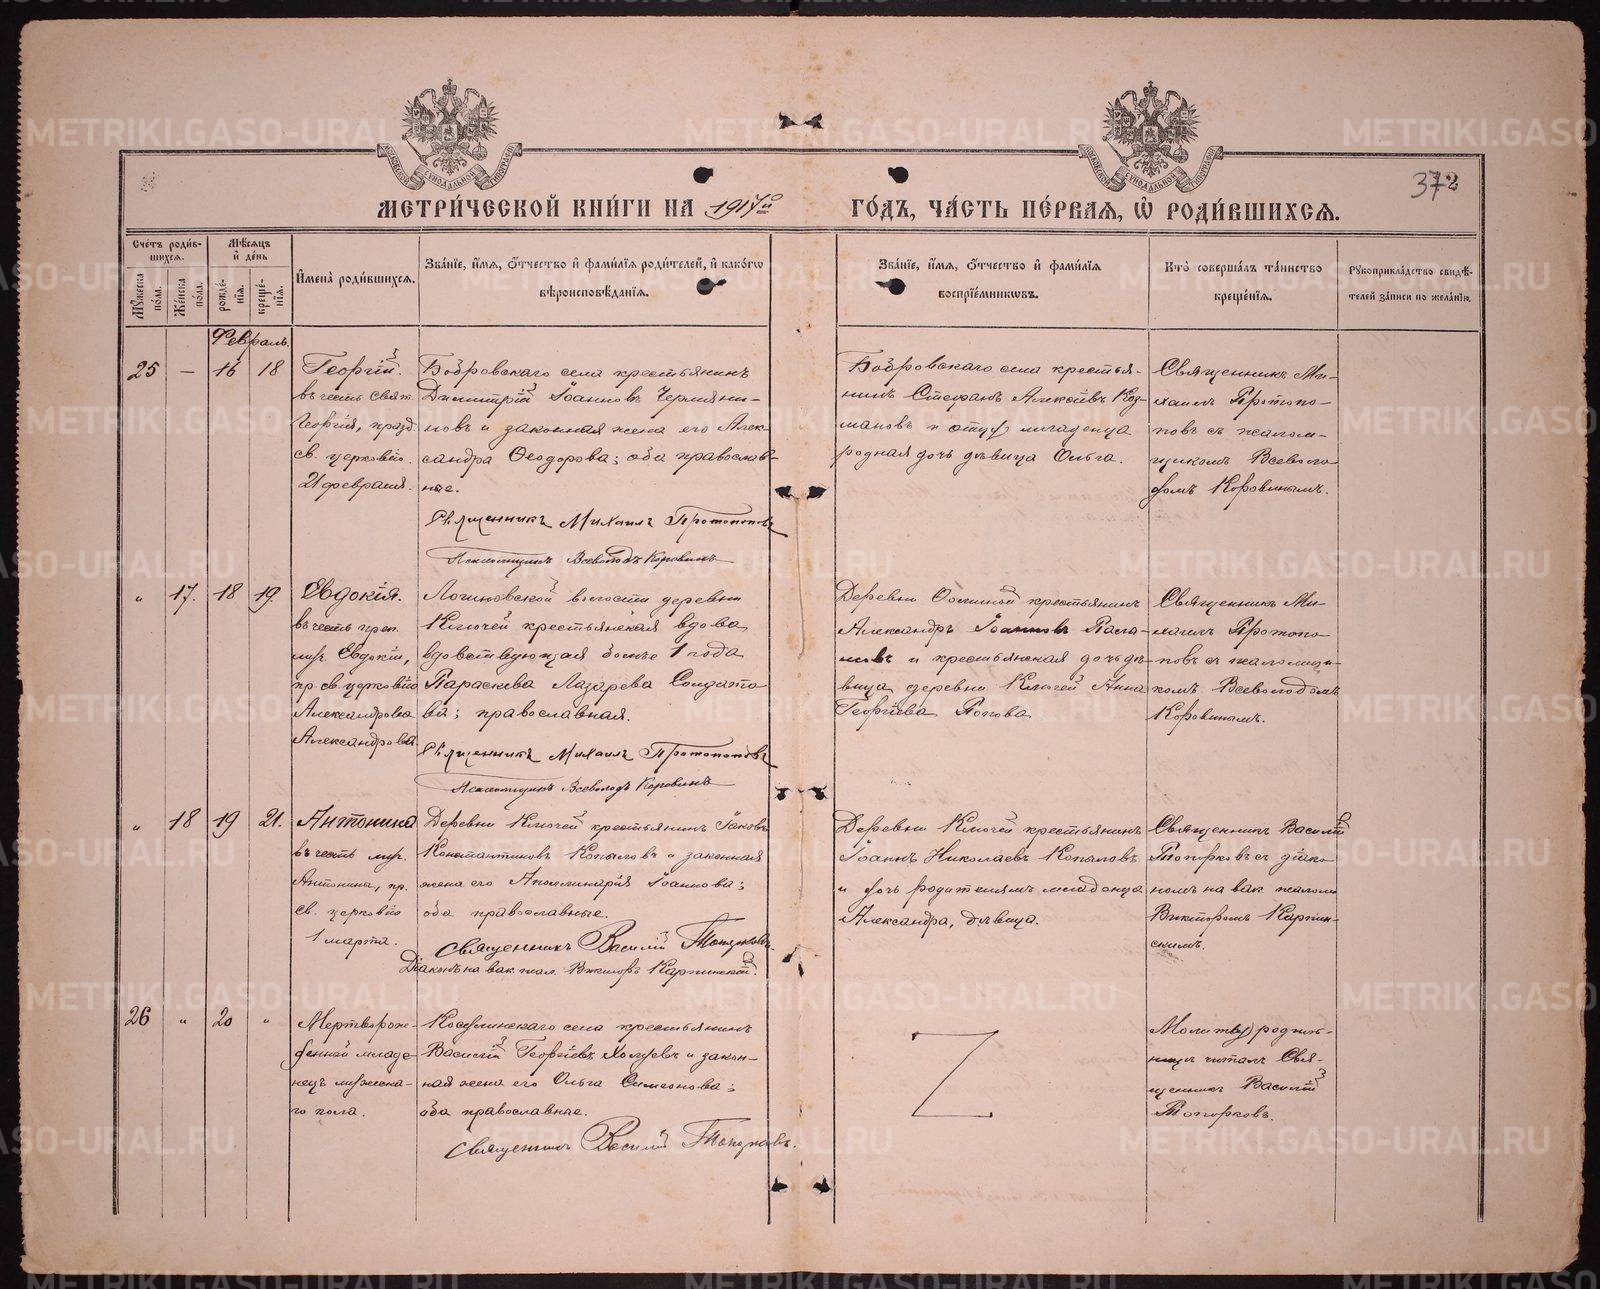 372
МЕТРИ́ЧЕСКОЙ КНИ́ГИ НА 1917й ГО́ДЪ, ЧА́СТЬ ПЕ́РВАЯ, Ѡ РОДИ́ВШИХСЯ.
Сче́тъ роди́в-
шихся.
Му́жеска по́ла.
Же́нска по́ла.
Мѣ́сяцъ
и҆ де́нь
рожде́-
нїя.
креще́-
нїя.
И҆мена̀ роди́вшихся.
Зва́нїе, и҆́мя, ѻ҆́тчество и҆ фами́лїѧ роди́телей, и҆ како́гѡ
вѣроисповѣ́данїѧ.
Зва́нїе, и҆́мя, ѻ҆́тчество и҆ фами́лїѧ
воспрїе́мникѡвъ.
Кто̀ соверша́лъ та́инство
креще́нїѧ.
Рꙋкоприкла́дство свидѣ́-
телей за́писи по жела́нїю.
Февраль.
25 — 16 18
Георгій.
въ честь свят.
Георгія, празд.
св. церковію
21 февраля.
Бобровскаго села крестьянинъ
Димитрій Іоанновъ Черляни-
новъ и законная жена его Алек
сандра Ѳеодорова; оба православ-
ные.
Священникъ Михаилъ Протопоповъ
Псаломщикъ Всеволодъ Коровинъ
Бобровскаго села крестья-
нинъ Стефанъ Алексѣевъ
и отца младенца
родная дочь дѣвица Ольга.
Священникъ Ми-
хаилъ Протопо-
повъ съ псалом-
щикомъ Всеволо-
домъ Коровинымъ.
" 17. 18 19.
Евдокія.
въ честь преп.
муч. Евдокіи,
пр. св. церковію
Александрова
Александрова.
Логиновской волости деревни
Ключей крестьянская вдова
вдовствующая болѣе 1 года
Параскева Лазарева Солдато
ва; православная.
Священникъ Михаилъ Протопоповъ
Псаломщикъ Всеволодъ Коровинъ
Деревни крестьянинъ
Александръ Іоанновъ
и крестьянская дочь дѣ-
вица деревни Ключей Анна
Георгіева Попова
Священникъ Ми-
хаилъ Протопо-
повъ съ псаломщи-
комъ Всеволодомъ
Коровинымъ.
" 18 19 21.
Антонина
въ честь муч.
Антонины, пр.
св. церковію
1 марта.
Деревни Ключей крестьянинъ Іаковъ
Константиновъ Копыловъ и законная
жена его Аполлинарія Іоаннова;
оба православные.
Священникъ Василій Топорковъ.
Діаконъ на вак. псал. Викторъ Карпинскій.
Деревни Ключей крестьянинъ
Іоаннъ Николаевъ Копыловъ
и дочь родителямъ младенца
Александра, дѣвица.
Священникъ Василій
Топорковъ съ діако
номъ на вак. псалом
Викторомъ Карпин-
скимъ.
26 " 20 "
Мертворож-
денной младе
нецъ мужска-
го пола.
Косулинскаго села крестьянинъ
Василій Георгіевъ и закон-
ная жена его Ольга Симеонова;
оба православные.
Священникъ Василій Топорковъ.
Молитву родиль-
ницѣ читалъ Свя-
щенникъ Василій
Топорковъ.